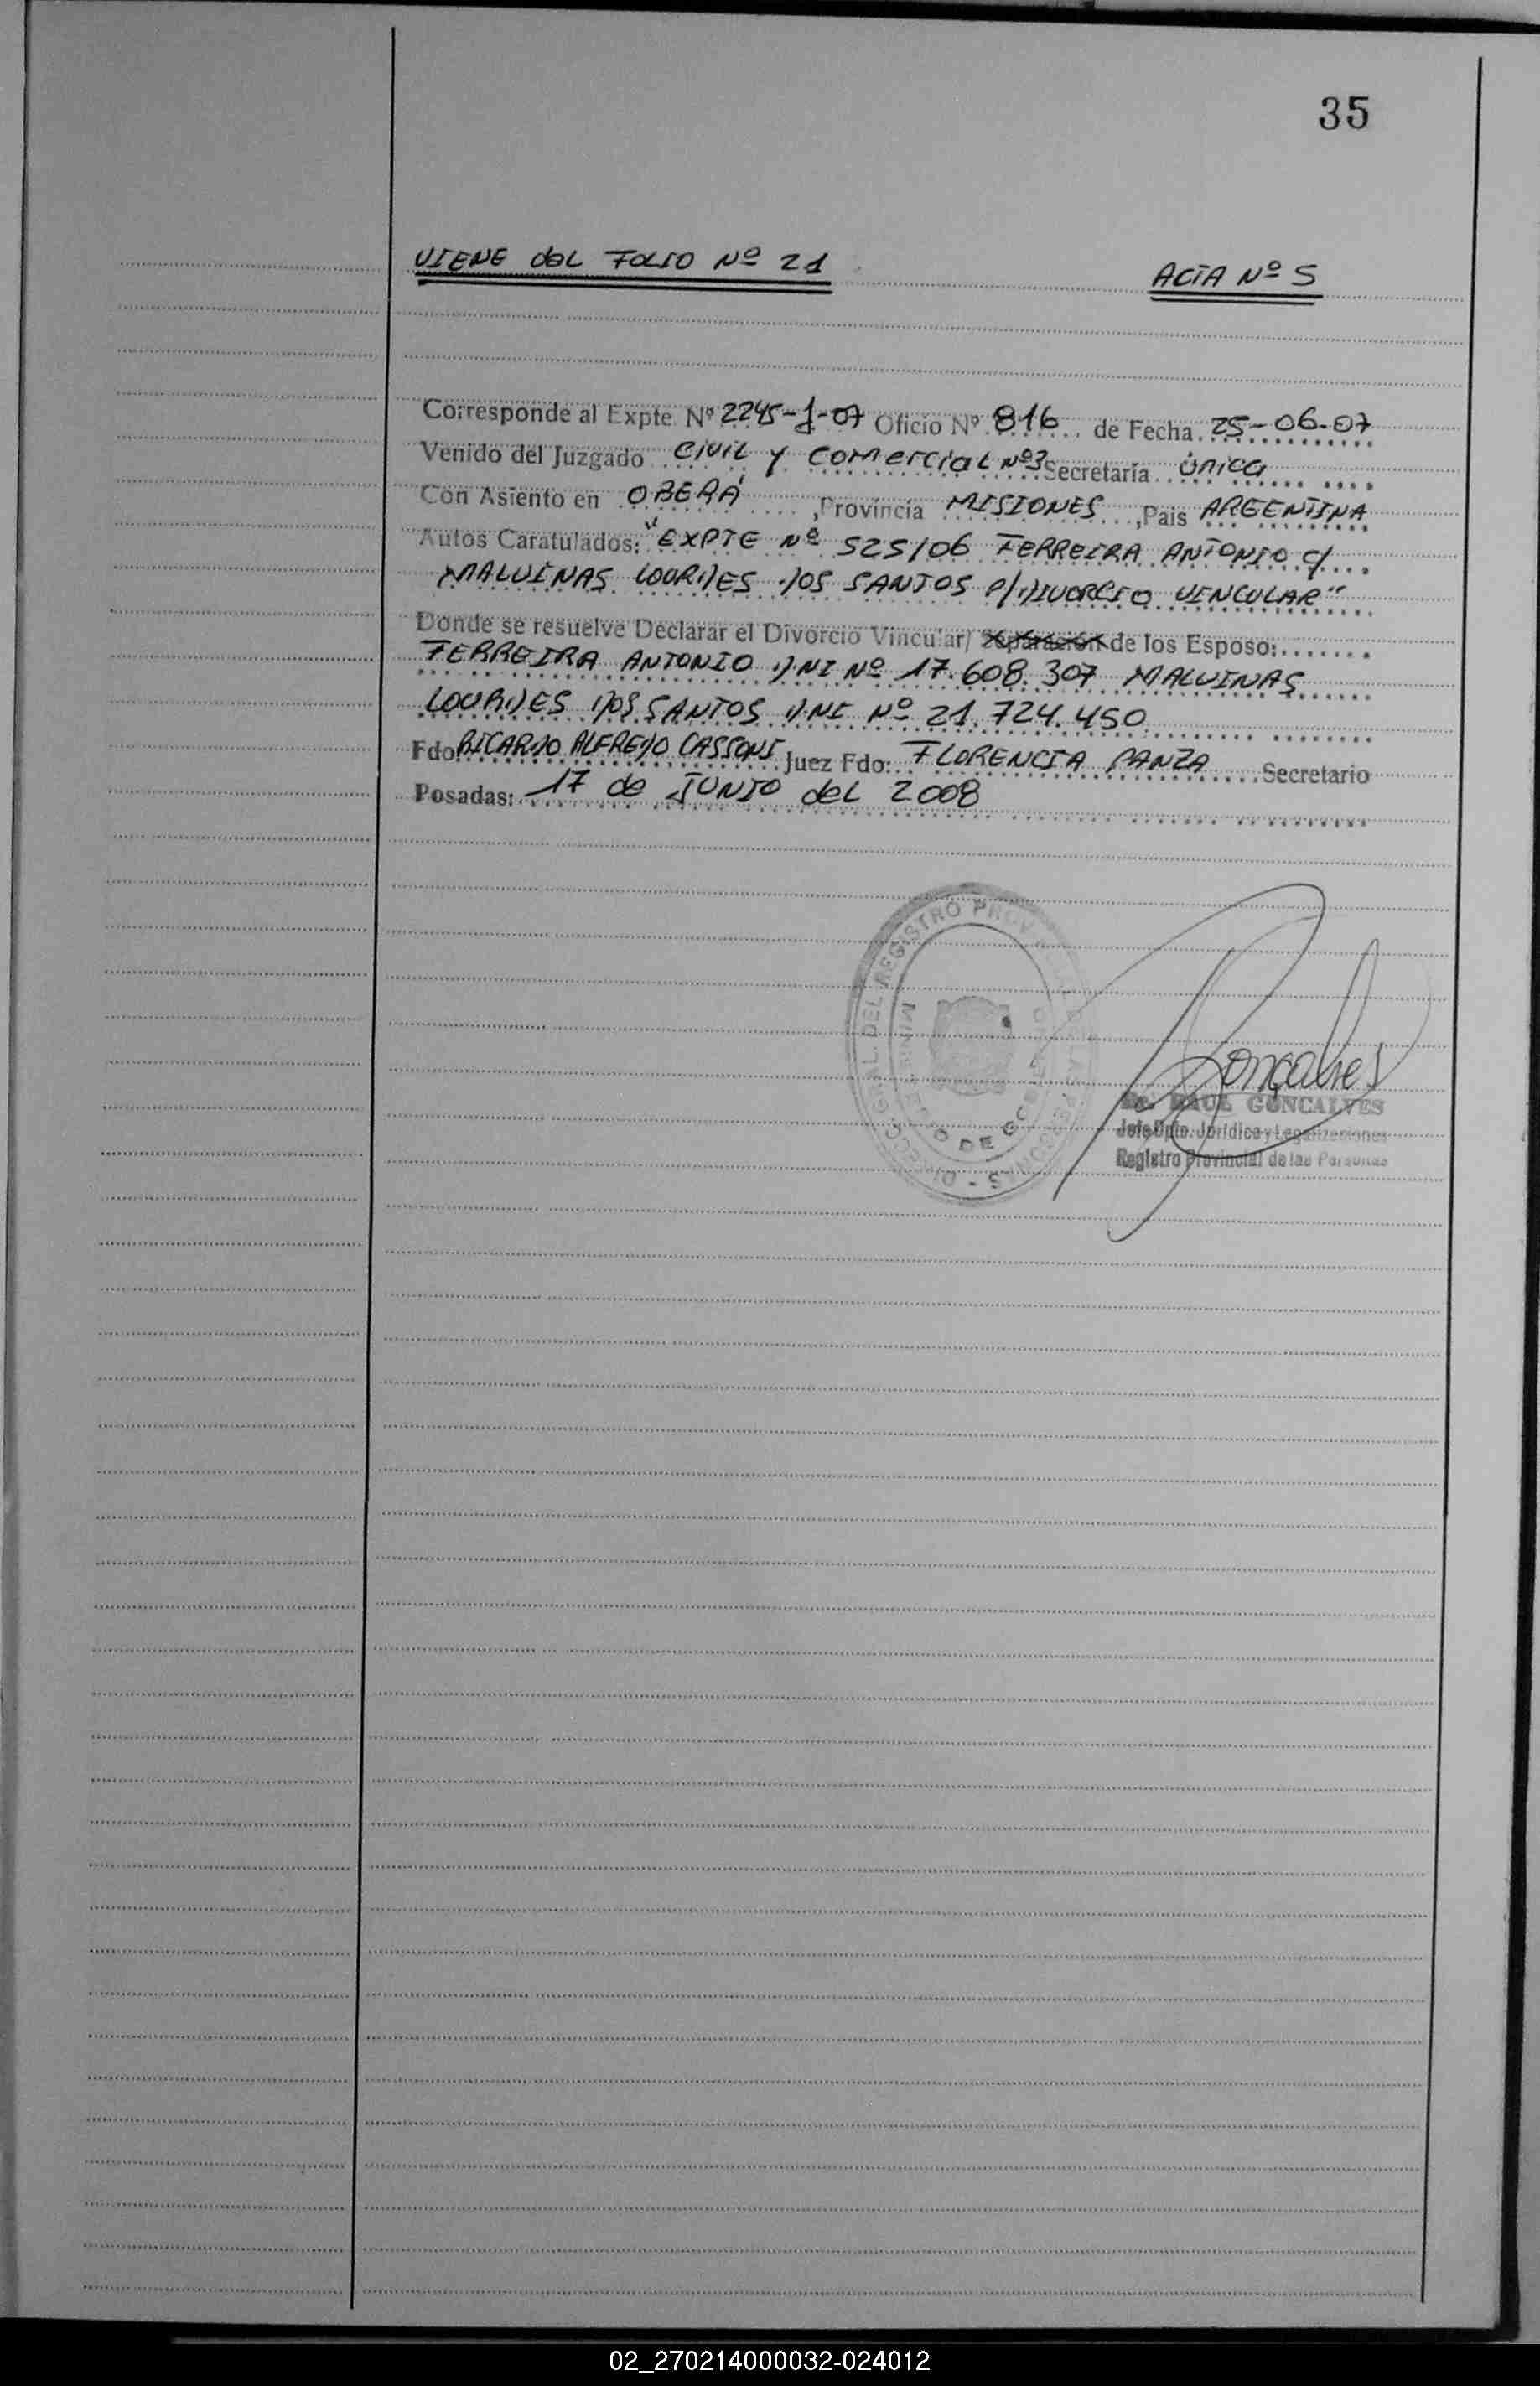 35
VIENE del FOLIO Nº 21 ACTA Nº 5
Corresponde al Expte. Nº 2245-J-07 Oficio Nº 816 de Fecha 25-06-07
Venido del Juzgado CIVIL y COMERCIAL Nº3 Secretaría ÚNICA
Con Asiento en OBERÁ, Provincia MISIONES, Pais ARGENTINA
Autos Caratulados: "EXPTE Nº 525/06 FERREIRA ANTONIO c/
MALVINAS LOURDES DOS SANTOS P/DIVORCIO VINCULAR"
Donde se resuelve Declarar el Divorcio Vincular/ Separación de los Esposo:
FERREIRA ANTONIO DNI Nº 17.608.307 MALVINAS
LOURDES DOS SANTOS DNI Nº 21.724.450
Fdo RICARDO ALFREDO CASSONI Juez Fdo: FLORENCIA PANZA Secretario
Posadas: 17 de JUNIO del 2008
DIRECC. GRAL. DEL REGISTRO PROV. DE LAS PERSONAS -
MINISTERIO DE GOBIERNO
Gonçalves
Dr. RAUL GONCALVES
Jefe Dpto. Jurídico y Legalizaciones
Registro Provincial de las Personas
02_270214000032-024012